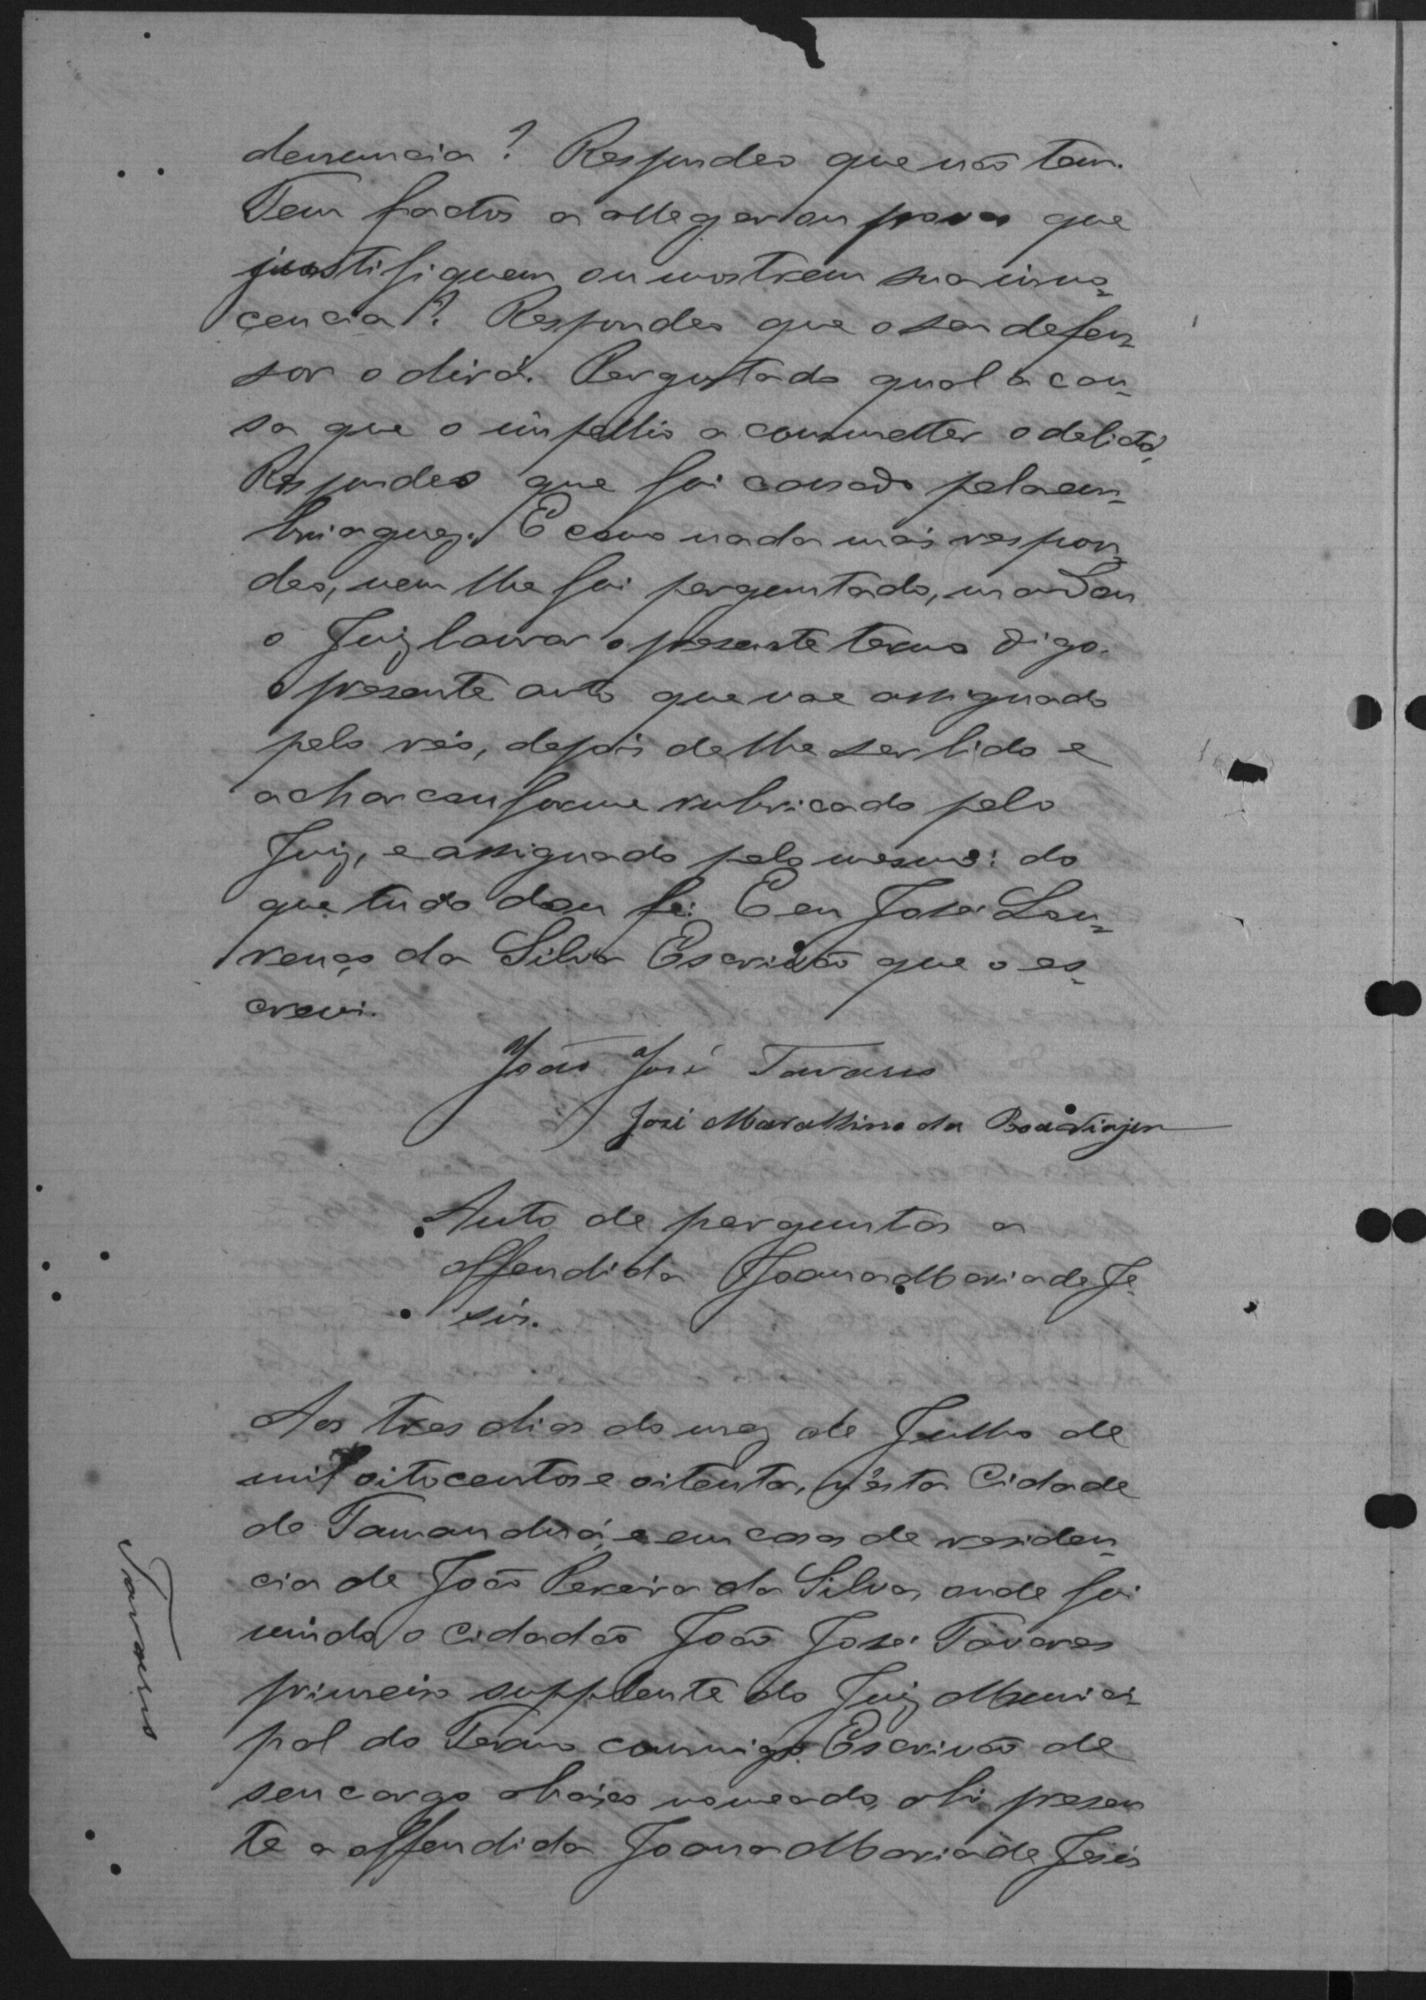 denuncia? Respondeo que não tem.
Tem factos a allegar ou provas que
justifiquem ou mostrem sua inno-
cencia? Respondeo que o seu defen-
sor o dirá. Perguntado qual a cau-
sa que o impellio a commetter o delicto?
Respondeo que foi causado pela em-
briaguez. E como nada mais respon-
deo, nem lhe foi perguntado, mandou
o Juiz lavrar o presente termo digo.
o presente auto que vae assignado
pelo réo, depois de lhe ser lido e
achar conforme rubricado pelo
Juiz, e assignado pelo mesmo: do
que tudo dou fé. E eu José Lou-
renço da Silva Escrivão que o es-
crevi.
João José Tavares
José Marcellino da Boaviagem
Auto de perguntas a
offendida Joanna Maria de Je-
sús.
Aos tres dias do mez de Julho de
mil oitocentos e oitenta, n'esta Cidade
de Tamanduá, e em casa de residen-
cia de João Pereira da Silva, onde foi
vindo o cidadão João José Tavares
primeiro supplente do Juiz Munici-
pal do Termo commigo Escrivão de
seu cargo abaixo nomeado, ahi presen
te a offendida Joanna Maria de Jesús
Tavares